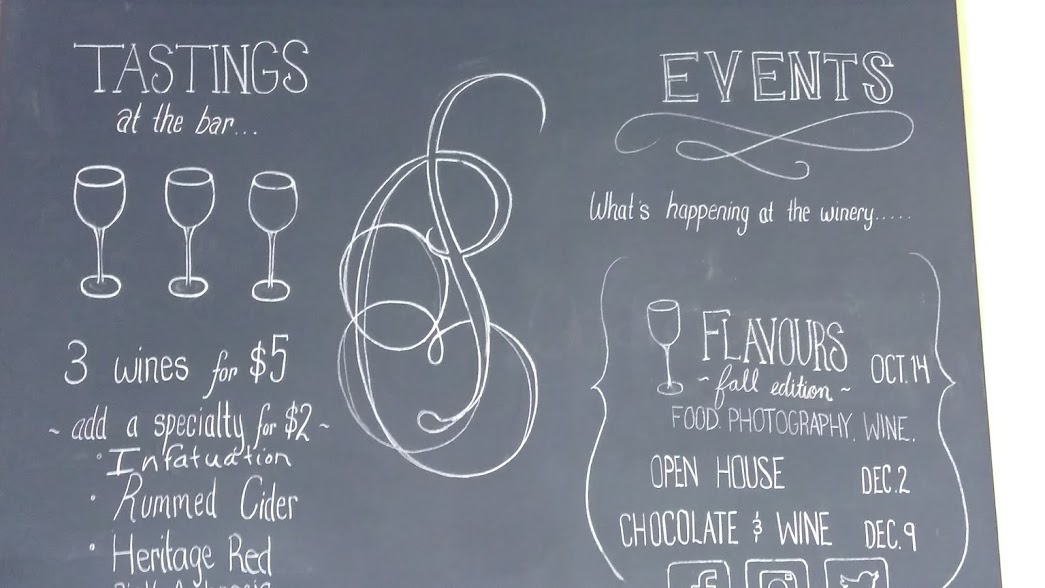 TASTINGS
at the bar...
3 wines for $5
~ add a specialty for $2 ~
• Infatuation
• Rummed Cider
• Heritage Red
EVENTS
What's happening at the winery.....
FLAVOURS OCT. 14
~ fall edition ~
FOOD. PHOTOGRAPHY. WINE.
OPEN HOUSE DEC. 2
CHOCOLATE & WINE DEC. 9